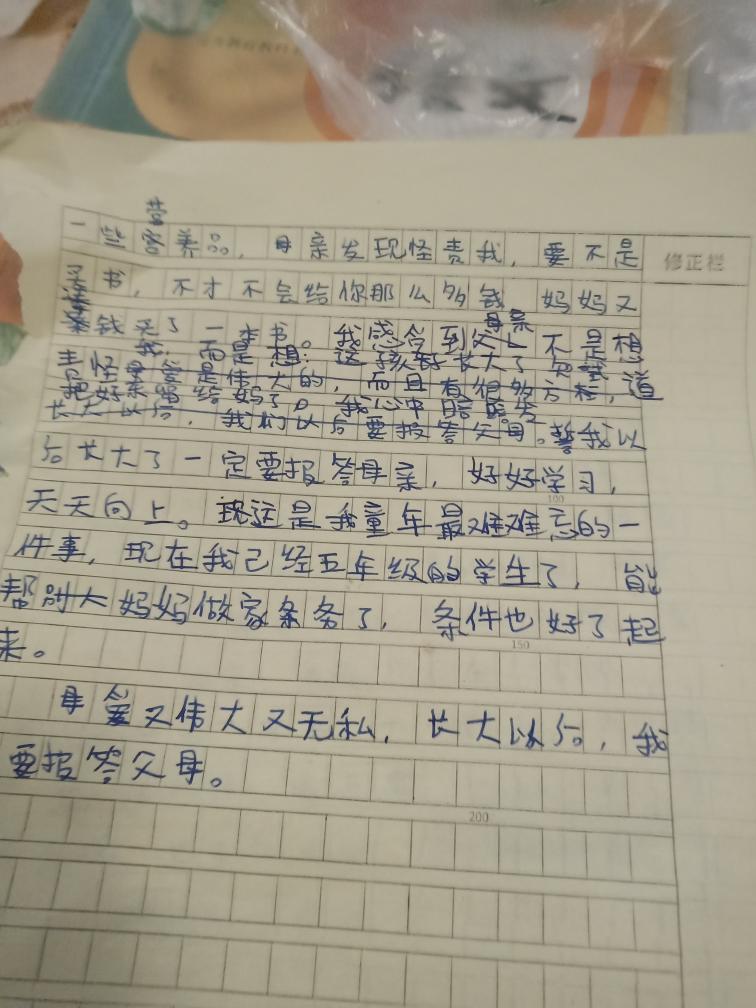 营
一些营养品，母亲发现怪责我，要不是
买书，不才不会给你那么多钱 妈妈又
修正栏
母亲
钱买了一本书。我感觉到父上不是想
责怪我，而是想：这孩子长大了 知道
母爱是伟大的，而且有很多方
把好东西给妈了。我心中暗暗发
长大以后，我们以后要报答父母。誓我以
后长大了一定要报答母亲，好好学习，
100
天天向上。现这是我童年最难难忘的一
件事，现在我己经五年级的学生了，能
帮别人妈妈做家条务了，条件也好了起
150
来。
母爱又伟大又无私，长大以后，我
要报答父母。
200